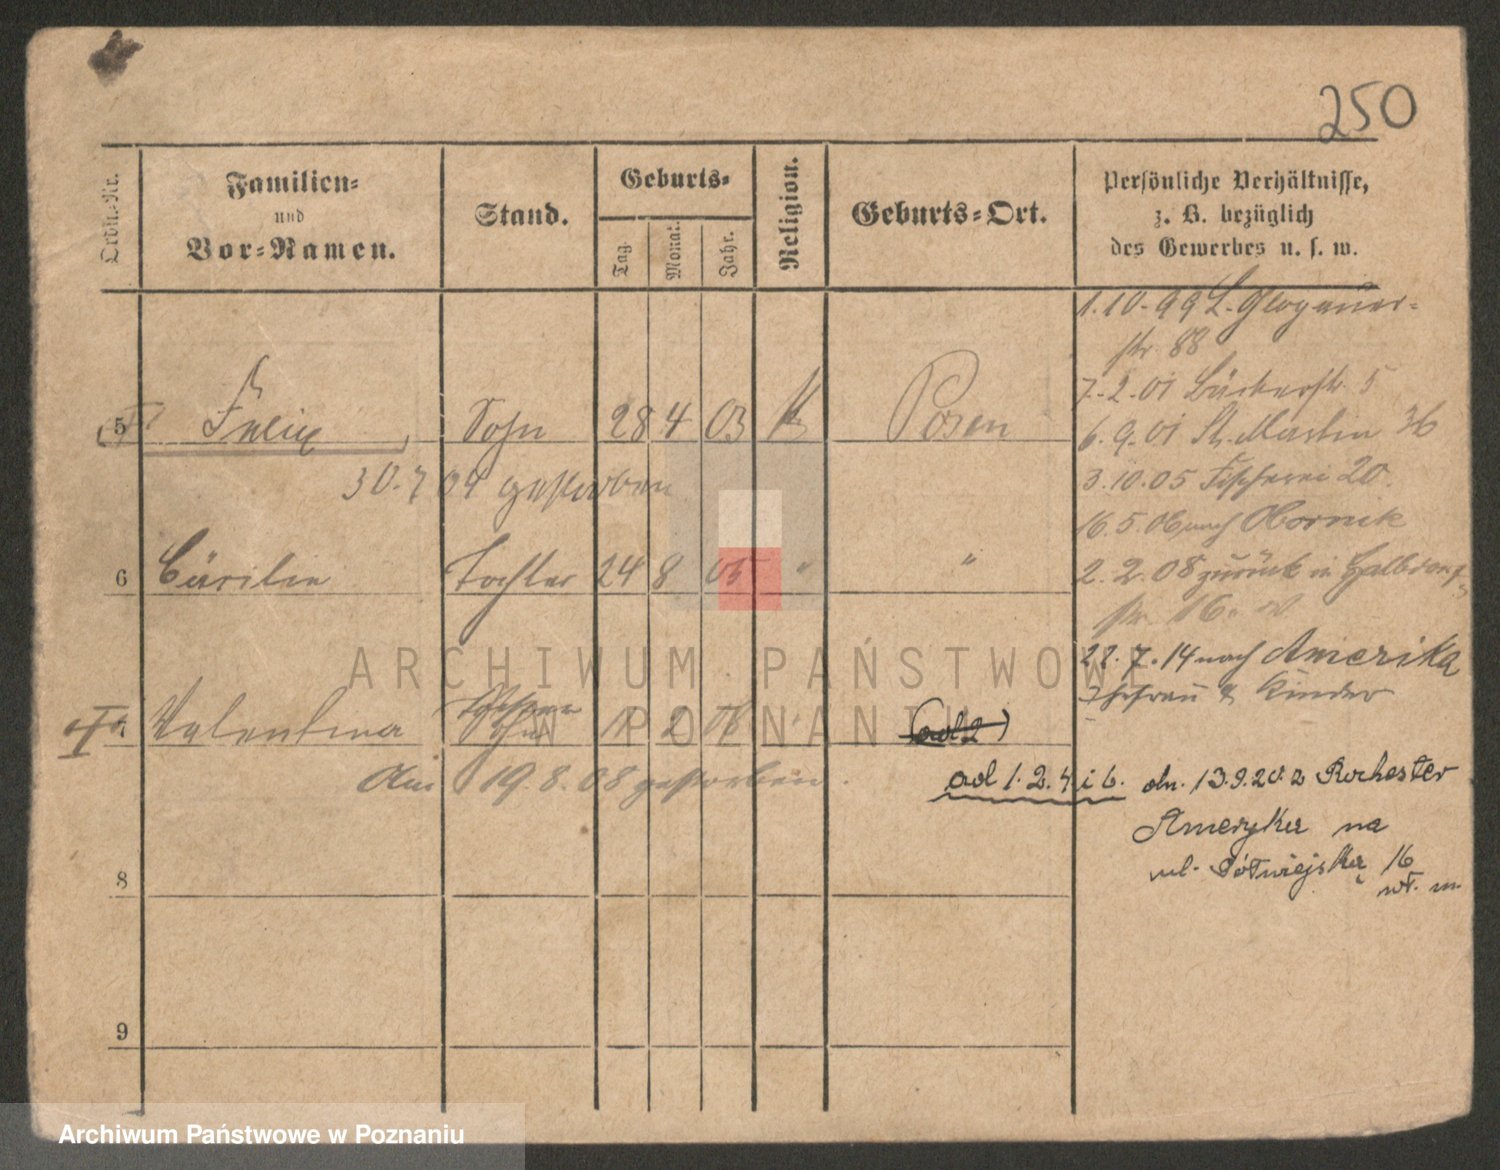 250
Ordn.-Nr.
Familien-
und
Vor-Namen.
Stand.
Geburts-
Tag.
Monat.
Jahr.
Religion.
Geburts-Ort.
Persönliche Verhältnisse,
z. B. bezüglich
des Gewerbes u. s. w.
1.10.99 L. Glogauer-
str. 88
7.2.01 Bäckerstr. 5
5 Felix Sohn 28 4 03 K Posen
6.9.01 St. Martin 36
30.7 04 gestorben
3.10.05 Fischerei 20.
16.5.06 nach Obornik
6 Cäcilie Tochter 24 8 05 " "
2.2.08 zurück in Halbdorf-
str. 16.
ARCHIWUM PAŃSTWOWE
W POZNANIU
7.14 nach Amerika
Ehefrau & Kinder
Valentina 2
(ad 2)
Am 19.8.08 gestorben.
ad 1.2.4 i 6. dn. 13.9.20 z Rochester
Ameryka na
ul. Półwiejska 16
8
9
Archiwum Państwowe w Poznaniu